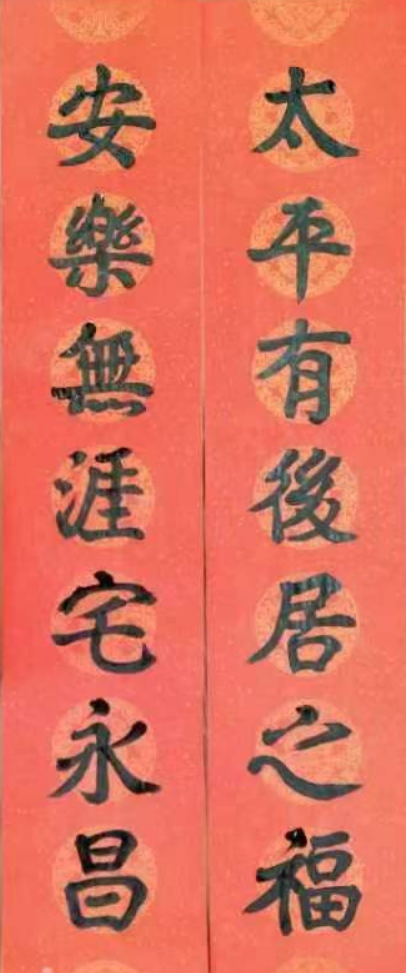 太平有後居之福
安樂無涯宅永昌